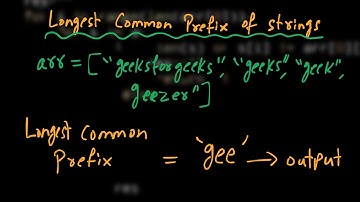 Longest Common Prefix of strings
arr = ["geeksforgeeks", "geeks", "geek",
geezer"]
Longest Common
Prefix = 'gee' → output
res